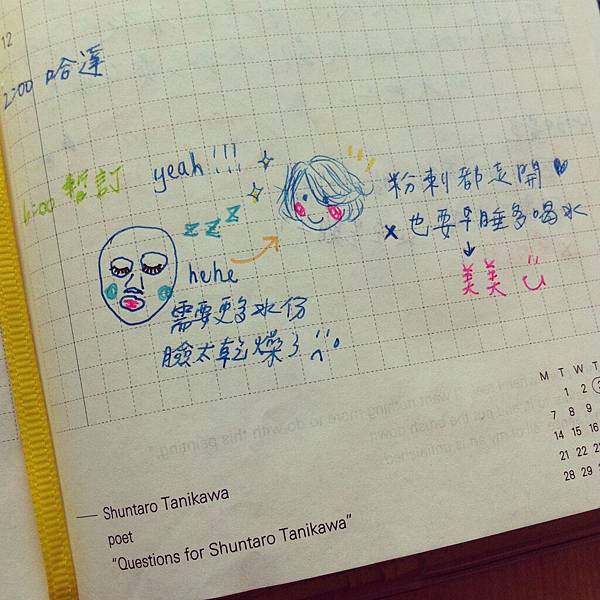 12
2:00 哈蓬
4:00 暫訂
yeah!!!
z z z
hehe
需要更多水份
臉太乾燥了
粉刺都走開♥
x 也要早睡多喝水
↓
美美
M T W T
1 2 3
7 8 9
14 15 16
21 22 23
28 29
— Shuntaro Tanikawa
poet
"Questions for Shuntaro Tanikawa"